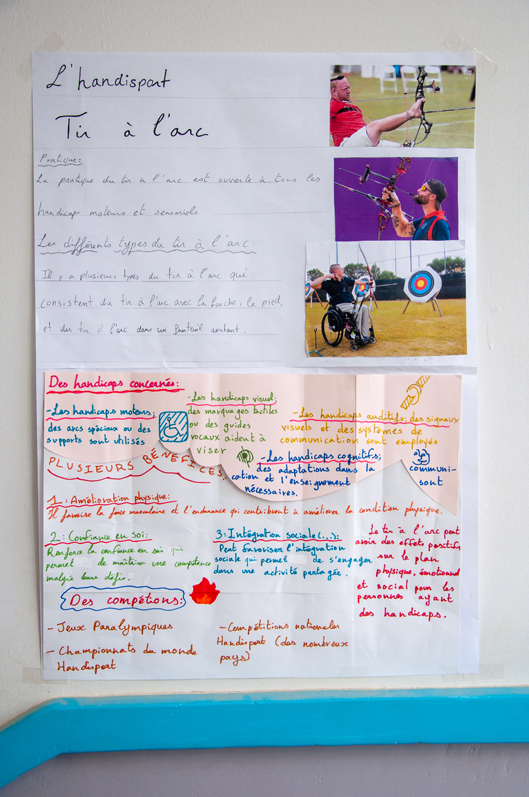 L'handisport
Tir à l'arc
Pratique:
La pratique du tir à l'arc est ouverte à tous les
handicaps moteurs et sensoriels
Les différents types du tir à l'arc:
Il y a plusieurs types du tir à l'arc qui
consistent du tir à l'arc avec la bouche, le pied,
et du tir à l'arc dans un fauteuil roulant.
Des handicaps concernés:
-Les handicaps moteurs;
des arcs spéciaux ou des
supports sont utilisés
-Les handicaps visuel;
des marquages tactiles
ou des guides
vocaux aident à
viser
-Les handicaps auditifs; des signaux
visuels et des systèmes de
communication sont employés
-Les handicaps cognitifs;
des adaptations dans la communi-
cation et l'enseignement sont
nécessaires.
PLUSIEURS BÉNÉFICES
1: Amélioration physique:
Il favorise la force musculaire et l'endurance qui contribuent à améliorer la condition physique.
2: Confiance en soi:
Renforce la confiance en soi qui
permet de maîtriser une compétence
malgré leurs défis.
3: Intégration sociale (...):
Peut favoriser l'intégration
sociale qui permet de s'engager
dans une activité partagée.
Le tir à l'arc peut
avoir des effets positifs
sur le plan
physique, émotionnel
et social pour les
personnes ayant
des handicaps.
Des compétions:
- Jeux Paralympiques
- Championnats du monde
Handisport
-Compétitions nationales
Handisport (des nombreux
pays)